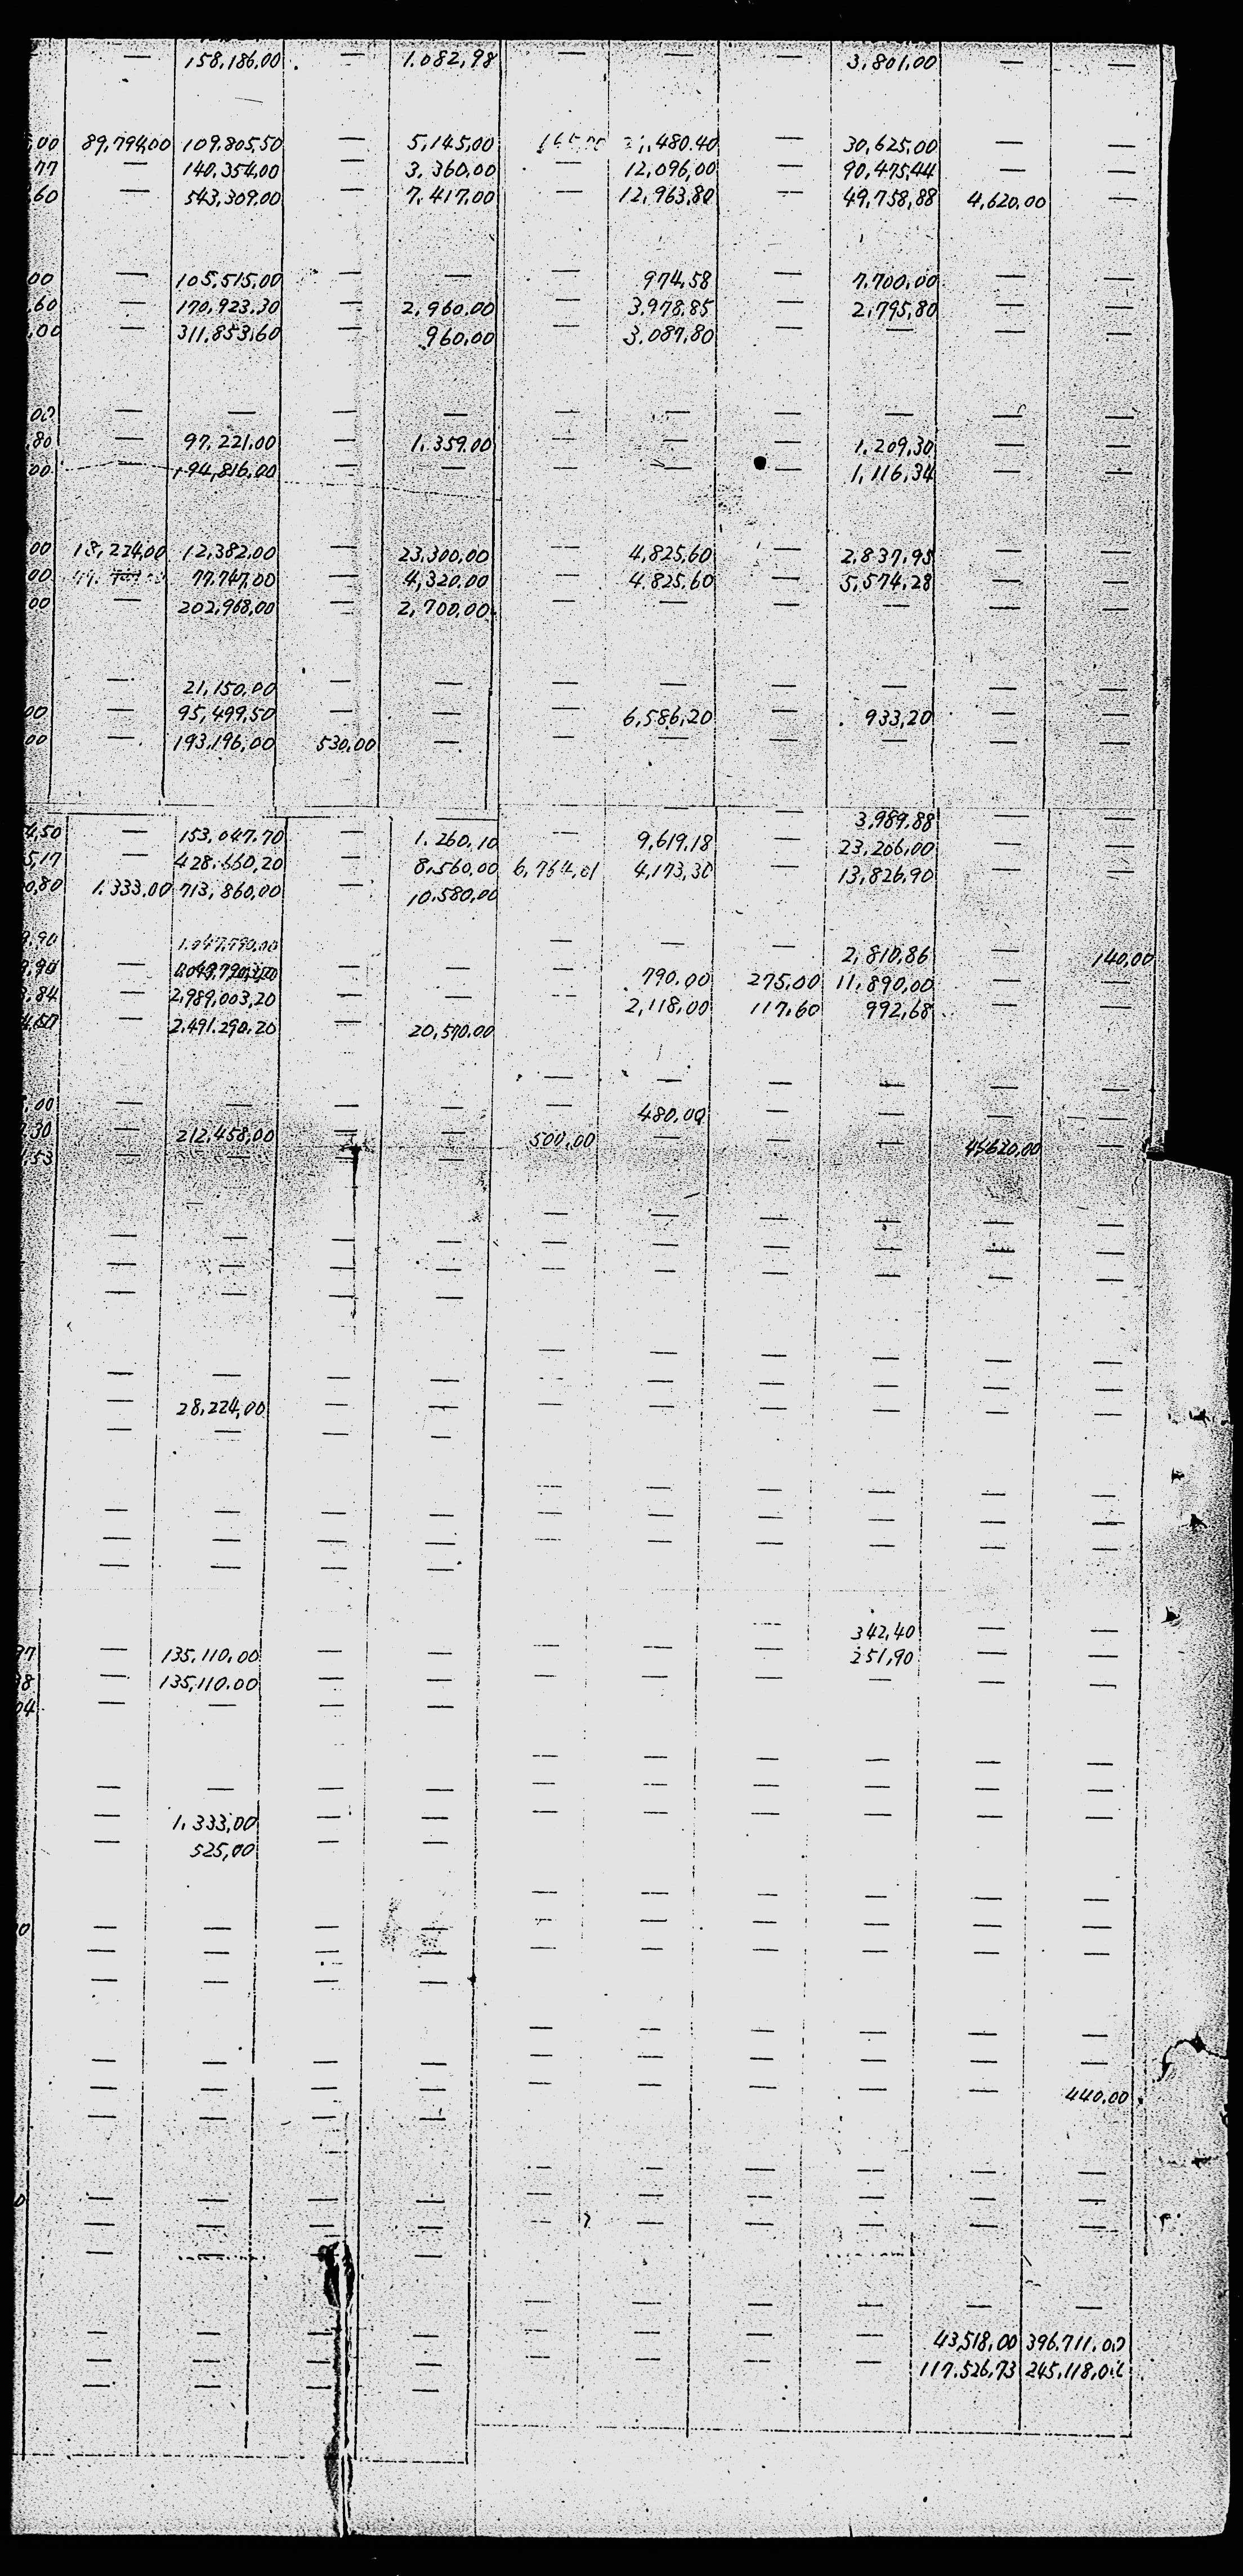 — 158,186,00 — 1.082,98 — — — 3,801,00 — —
,00 89,794,00 109,805,50 — 5,145,00 ,480.40 — 30,625,00 — —
77 — 140,354,00 — 3,360,00 — 12,096,00 — 90,475,44 — —
,60 — 543,309,00 — 7,417,00 — 12,963,80 — 49,758,88 4,620,00 —
00 — 105,515,00 — — — 974,58 — 7,700,00 — —
,60 — 170,923,30 — 2,960,00 — 3,978,85 — 2,795,80 — —
,00 — 311,853,60 — 960,00 — 3,087,80 — — — —
00 — — — — — — — — — —
,80 — 97,221,00 — 1,359,00 — — — 1,209,30 — —
00 — 194,816,00 — — — — — 1,116,34 — —
00 18,224,00 12,382,00 — 23,300,00 — 4,825,60 — 2,837,95 — —
00 77,747,00 — 4,320,00 — 4,825,60 — 5,574,28 — —
00 — 202,968,00 — 2,700,00 — — — — — —
— 21,150,00 — — — — — — — —
00 — 95,499,50 — — — 6,586,20 — 933,20 — —
00 — 193,196,00 530,00 — — — — — — —
4,50 — 153,047,70 — 1,260,10 — — — 3,989,88 — —
5,17 — 428,660,20 — 8,560,00 — 9,619,18 — 23,206,00 — —
0,80 1,333,00 713,860,00 — 10,580,00 6,764,01 4,173,30 — 13,826,90 — —
9,90 1,047,790,00
9,90 — — — — — — 2,810,86 — 140,00
,84 — 2,989,003,20 — — — 790,00 275,00 11,890,00 — —
4,67 — 2,491,290,20 — 20,570,00 2,118,00 117,60 992,68 — —
,00 — — — — — — — — — —
,30 — 212,458,00 — — — 480,00 — — — —
,53 — — — — 500,00 — — — 45,620,00 —
— — — — — — — — — —
— — — — — — — — — —
— — — — — — — — — —
— — — — — — — — — —
— 28,224,00 — — — — — — — —
— — — — — — — — — —
— — — — — — — — — —
— — — — — — — — — —
— — — — — — — — — —
97 — 135,110,00 — — — 342,40 — —
98 — 135,110,00 — — — — — 251,90 — —
04 — — — — — — — — — —
— — — — — — — — — —
— 1,333,00 — — — — — — — —
— 525,00 — — — — — — — —
0 — — — — — — — — — —
— — — — — — — — — —
— — — — — — — — — —
— — — — — — — — — —
— — — — — — — — — —
— — — — — — — — — 440,00
0 — — — — — — — — — —
— — — — — — — — — —
— — — — — — — — — —
— — — — — — — — — —
— — — — — — — — 43,518,00 396,711,00
— — — — — — — — 117,526,73 245,118,00